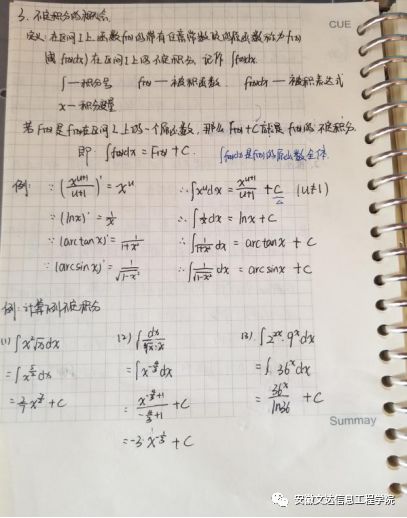 3. 不定积分的概念.
CUE
定义: 在区间I上,函数f(x)的带有任意常数项的原函数称为f(x)
(或f(x)dx)在区间I上的不定积分, 记作∫f(x)dx.
∫—积分号 f(x)—被积函数. f(x)dx—被积表达式
x—积分变量
若F(x)是f(x)在区间I上的一个原函数, 那么F(x)+C就是f(x)的不定积分.
即: ∫f(x)dx = F(x) + C. ∫f(x)dx是f(x)的原函数全体.
例: ∵ (x^(u+1)/(u+1))' = x^u ∴ ∫x^u dx = x^(u+1)/(u+1) + C (u≠1)
∵ (lnx)' = 1/x ∴ ∫1/x dx = lnx + C
∵ (arctanx)' = 1/(1+x²) ∴ ∫1/(1+x²) dx = arctanx + C
∵ (arcsinx)' = 1/√(1-x²) ∴ ∫1/√(1-x²) dx = arcsinx + C
例: 计算下列不定积分
(1) ∫x²√x dx (2) ∫dx/(∛x·x) (3) ∫2^(2x)·9^x dx
= ∫x^(5/2) dx = ∫x^(-4/3) dx = ∫36^x dx
= 2/7 x^(7/2) + C = x^(-4/3+1)/(-4/3+1) + C = 36^x/ln36 + C
= -3·x^(-1/3) + C
Summay
安徽文达信息工程学院